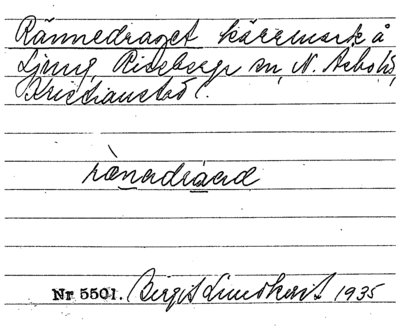 Rännedraget kärrmark å
Ljung, Riseberga sn, N. Åsbo hd,
Kristianstad l.
rànədráəd
Nr 5501. Birgit Lundkvist 1935